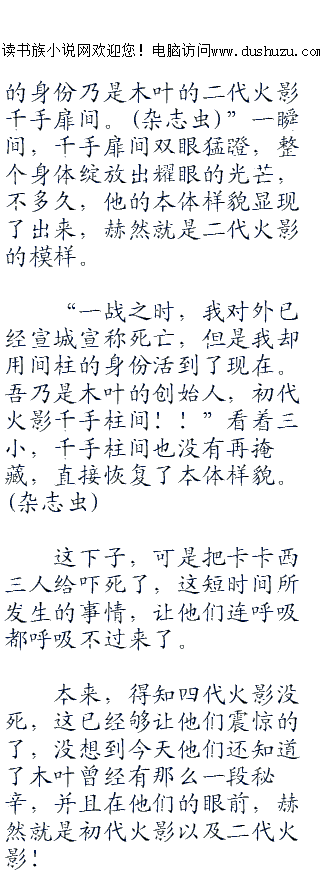 读书族小说网欢迎您！电脑访问www.dushuzu.com
的身份乃是木叶的二代火影
千手扉间。(杂志虫)”一瞬
间，千手扉间双眼猛瞪，整
个身体绽放出耀眼的光芒，
不多久，他的本体样貌显现
了出来，赫然就是二代火影
的模样。
“一战之时，我对外已
经宣城宣称死亡，但是我却
用间柱的身份活到了现在。
吾乃是木叶的创始人，初代
火影千手柱间！！”看着三
小，千手柱间也没有再掩
藏，直接恢复了本体样貌。
(杂志虫)
这下子，可是把卡卡西
三人给吓死了，这短时间所
发生的事情，让他们连呼吸
都呼吸不过来了。
本来，得知四代火影没
死，这已经够让他们震惊的
了，没想到今天他们还知道
了木叶曾经有那么一段秘
辛，并且在他们的眼前，赫
然就是初代火影以及二代火
影！